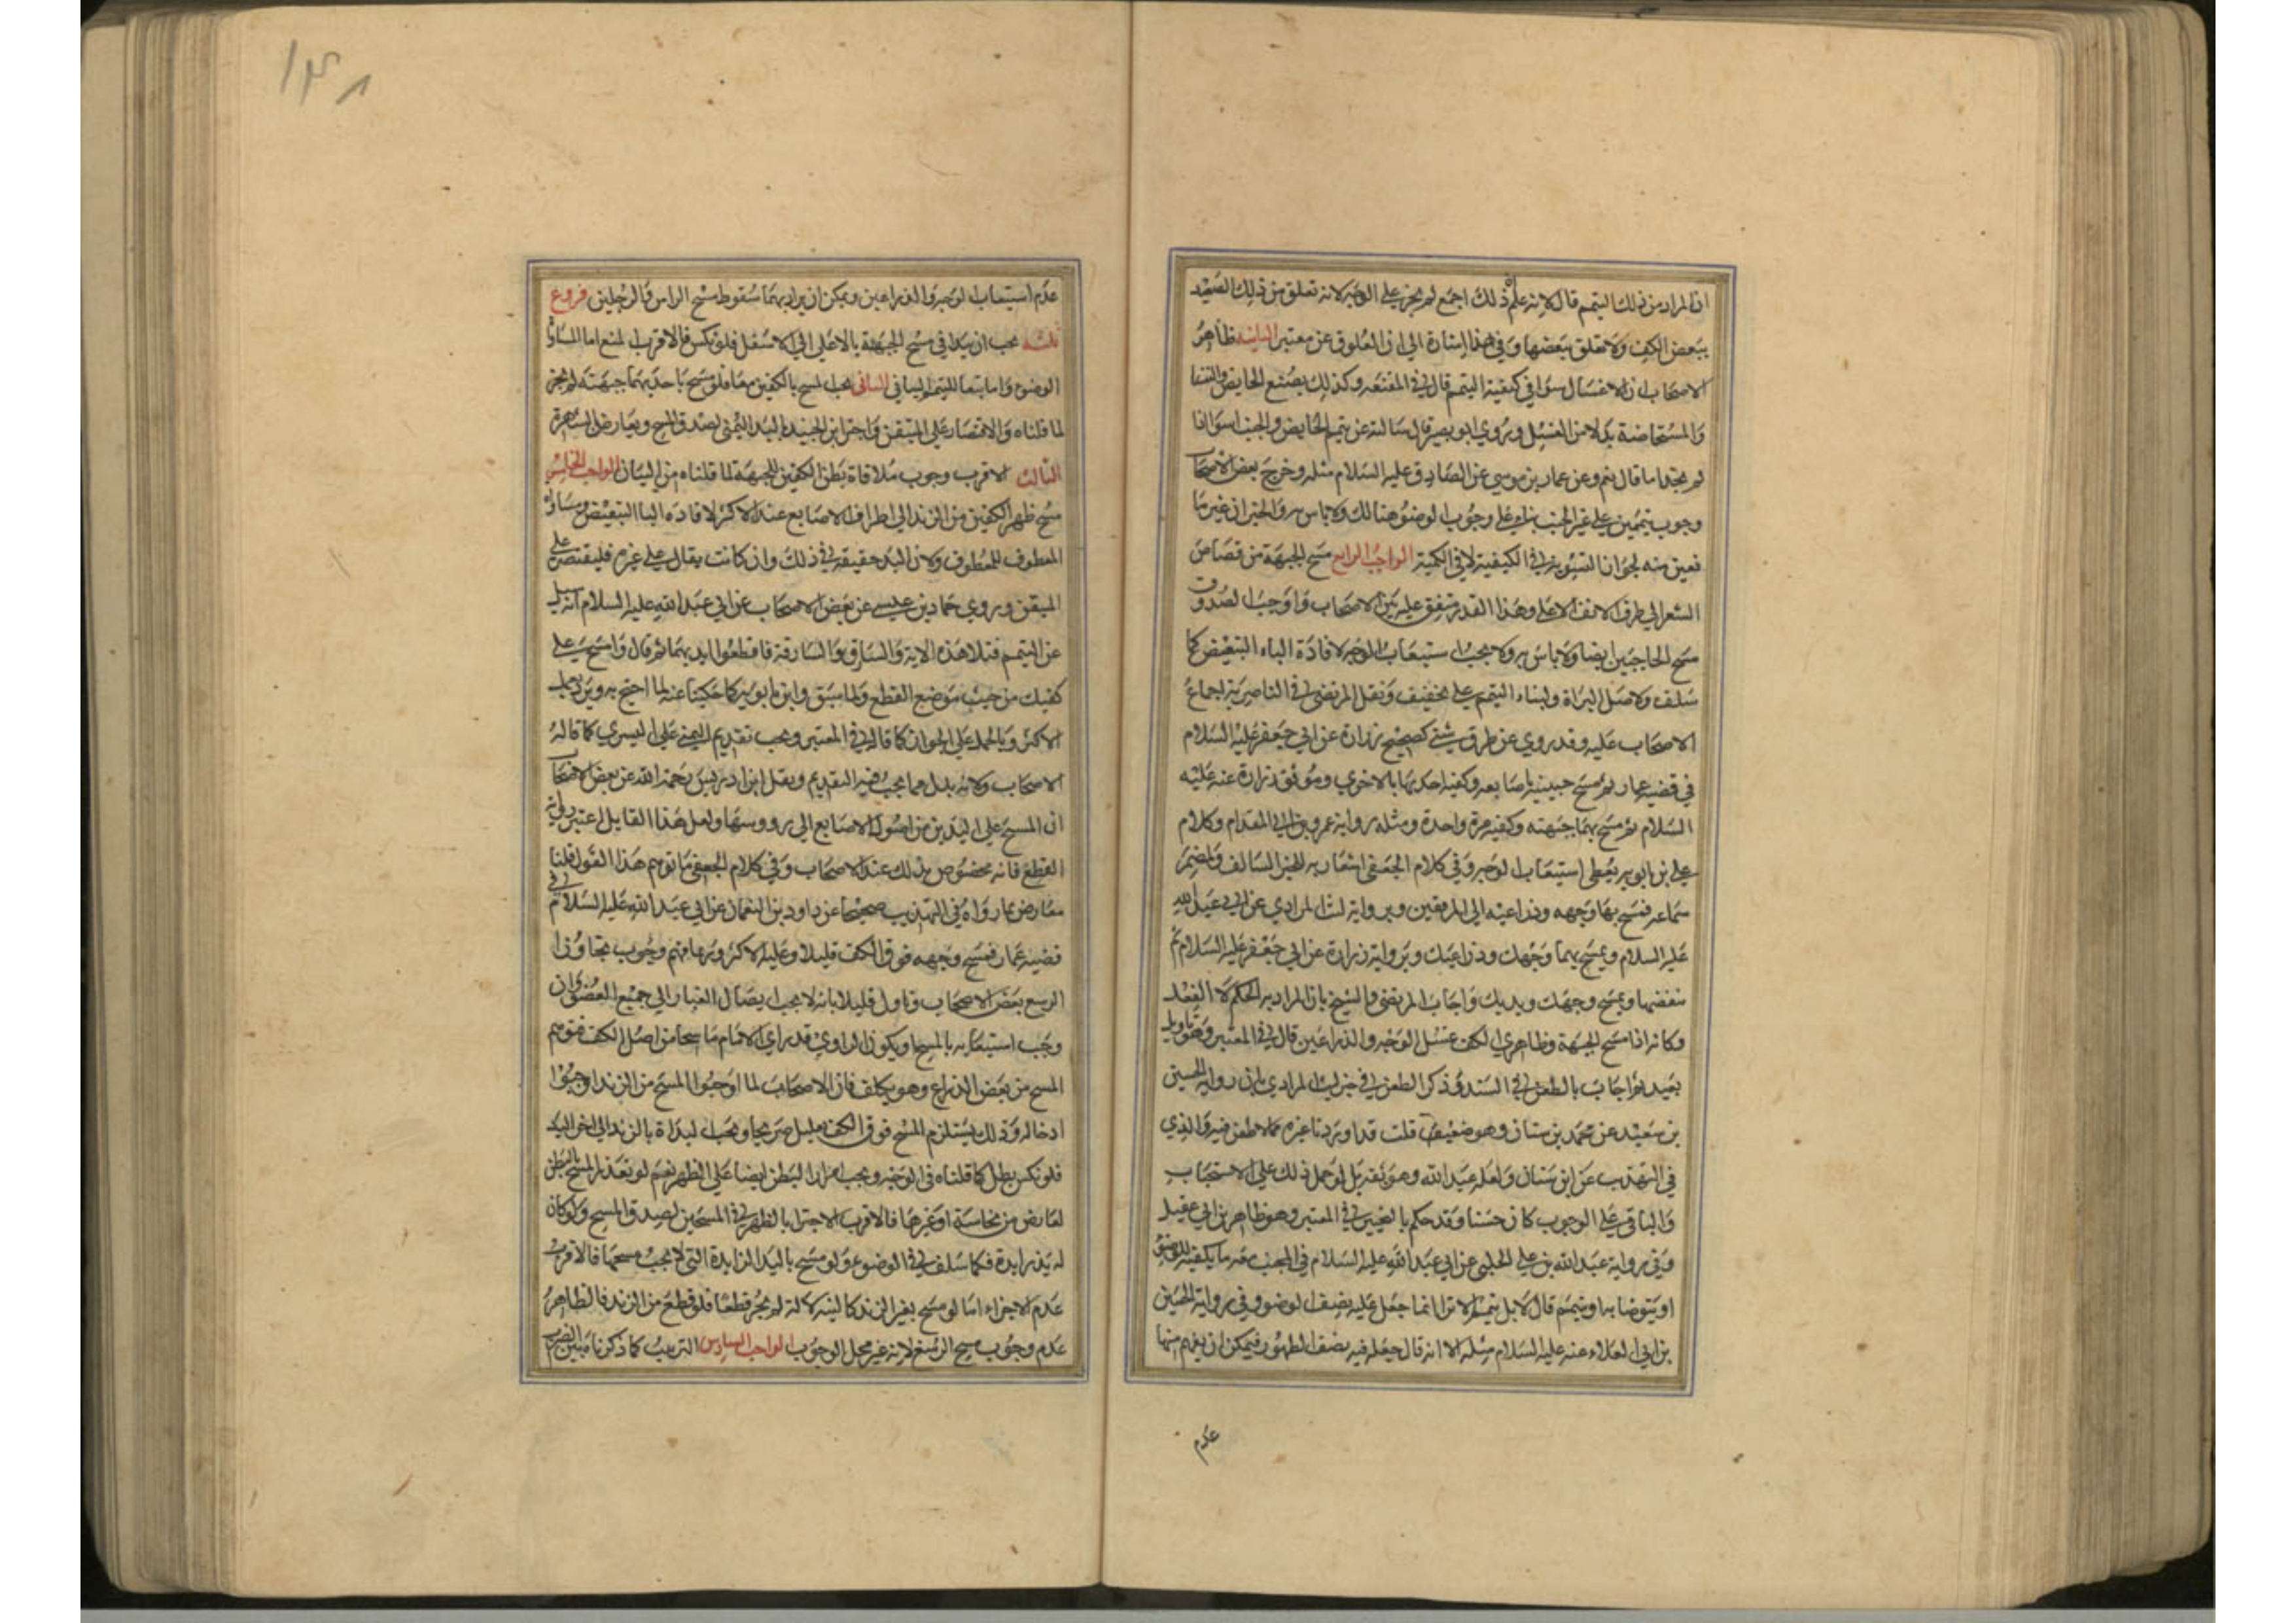 ان المراد من ذلك التيمم قال لانه علم ذلك اجمع لم يجر على الوجه لانه تعلق من ذلك الصعيد
ببعض الكف ولا تعلق ببعضها وفي هذا اشارة الى ان العلوق غير معتبر الثانية ظاهر
الاصحاب ان الاغتسال سوا في كيفية التيمم قال في المقنعه وكذلك يصنع الحايض والنفسا
والمستحاضة بدلا من الغسل وروي ابو بصير قال سالته عن تيمم الحايض والجنب اسوا اذا
لم يجدا ما قال نعم وعن عمار بن موسي عن الصادق عليه السلام مثله وخرج بعض الاصحاب
وجوب تيممين على غير الجنب بناء على وجوب الوضوء هنالك ولا باس به والخبران غير ما
نعين منه لجواز التسوية في الكيفية لا في الكمية الواجب الرابع مسح الجبهة من قصاص
الشعر الي طرف الانف الاعلى وهذا القدر متفق عليه بين الاصحاب واوجب الصدوق
مسح الحاجبين ايضا ولا باس به ولا يجب استيعاب الوجه لافادة الباء التبعيض كما
سلف ولاصل البراة ولبناء التيمم على تخفيف ونقل المرتضى في الناصرية اجماع
الاصحاب عليه وقد روي عن طرق شتى كصحيح زرارة عن ابي جعفر عليه السلام
في قضية عمار ثم مسح جبينيه باصابعه وكفيه احديهما بالاخري وموثق زرارة عنه عليه
السلام ثم مسح بهما جبهته وكفيه مرة واحدة ومثله رواية عمرو بن ابي المقدام وكلام
علي بن بابويه يعطى استيعاب الوجه وفي كلام الجعفي اشعار به للخبر السالف ولمضمر
سماعه فمسح بها وجهه وذراعيه الى المرفقين وبرواية ليث المرادي عن ابي عبد الله
عليه السلام وتمسح بهما وجهك وذراعيك وبرواية زرارة عن ابي جعفر عليه السلام ثم
تنفضهما وتمسح وجهك ويديك واجاب المرتضى والشيخ بان المراد به الحكم لا الفعل
وكانه اذا مسح الجبهة وظاهري الكف غسل الوجه والذراعين قال في المعتبر وهو تاويل
بعيد ثم اجاب بالطعن في السند وذكر الطعن في خبر ليث المرادي بان رواية الحسين
بن سعيد عن محمد بن سنان وهو ضعيف قلت قد اوردنا غيره مما لا طعن فيه والذي
في التهذيب عن ابن سنان ولعله عبد الله وهو ثقة بل لو حمل ذلك على الاستحباب
والباقي على الوجوب كان حسنا وقد حكم بالتخيير في المعتبر وهو ظاهر بن ابي عقيل
وفي رواية عبد الله بن علي الحلبي عن ابي عبد الله عليه السلام في الجنب معه ما يكفيه للوضوء
او يتوضا به او يتيمم قال لا بل يتيمم الا ترا انما جعل عليه نصف الوضوء وفي رواية الحسين
بن ابي العلاء عنه عليه السلام مثله الا انه قال جعل فيه نصف الطهور فيمكن ان يفهم منها
عدم
١٣٨
عدم استيعاب الوجه والذراعين ويمكن ان يراد بهما سقوط مسح الراس والرجلين فروع
ثلثه يجب ان يبدا في مسح الجبهة بالاعلى الى الاسفل فلو نكس فالاقرب المنع اما المساواة
الوضوء واما تبعا للتيمم البياني الثاني يجب المسح بالكفين معا فلو مسح باحديهما جبهته لم يجز
لما قلناه والاقتصار على المتيقن واجتزا بن الجنيد باليد اليمنى لصدق المسح ويعارض الشهرة
الثالث الاقرب وجوب ملاقاة بطن الكفين للجبهة لما قلناه من البيان الواجب الخامس
مسح ظهر الكفين من الزند الى اطراف الاصابع عند الاكثر لافادة البا التبعيض ومساواة
المعطوف للمعطوف ولان اليد حقيقة في ذلك وان كانت يقال على غيره فليقتصر على
المتيقن وروي حماد بن عيسى عن بعض الاصحاب عن ابي عبد الله عليه السلام انه سيل
عن التيمم فتلا هذه الاية والسارق والسارقة فاقطعوا ايديهما ثم قال وامسح على
كفيك من حيث موضع القطع ولما سبق وابن بابويه كما حكينا عنه لما احتج به ويرد عليه
الاكثر وبالحمل على الجواز كما قاله في المعتبر ويجب تقديم اليمنى على اليسري كما قاله
الاصحاب ولانه بدل مما يجب فيه التقديم ونقل ابن ادريس رحمه الله عن بعض الاصحاب
ان المسح على اليدين من اصول الاصابع الى رووسها ولعل هذا القايل اعتبر رواية
القطع فانه مخصوص بذلك عند الاصحاب وفي كلام الجعفي ما توهم هذا القول قلنا
معارض بما رواه في التهذيب صحيحا عن داود بن النعمان عن ابي عبد الله عليه السلام في
قضية عمار فمسح وجهه فوق الكف قليلا وعليه الاكثر وربما فهم وجوب تجاوز
الرسغ بعض الاصحاب وتاول قليلا بانه لا يجب ايصال الغبار الى جميع العضو وان
وجب استيعابه بالمسح او يكون الراوي قد راي الامام ماسحا من اصل الكف فتوهم
المسح من بعض الذراع وهو تكلف فان الاصحاب لما اوجبوا المسح من الزند اوجبوا
ادخاله وذلك يستلزم المسح فوق الكف بقليل صريحا ويجب البداة بالزند الى اخر اليد
فلو نكس بطل كما قلناه في الوجه ويجب امرار البطن ايضا على الظهر نعم لو تعذر المسح بالبطن
لعارض من نجاسة او غيرها فالاقرب الاجتزا بالظهر في المسحين لصدق المسح ولو كان
له يد زايدة فكما سلف في الوضوء ولو مسح باليد الزايدة التي لا يجب مسحها فالاقرب
عدم الاجزاء اما لو مسح بغير الزند كاليسه لالة لم يجز قطعا فلو قطع من الزند فالظاهر
عدم وجوب مسح الرسغ لانه غير محل الوجوب الواجب السادس الترتيب كما ذكرناه بين الضرب